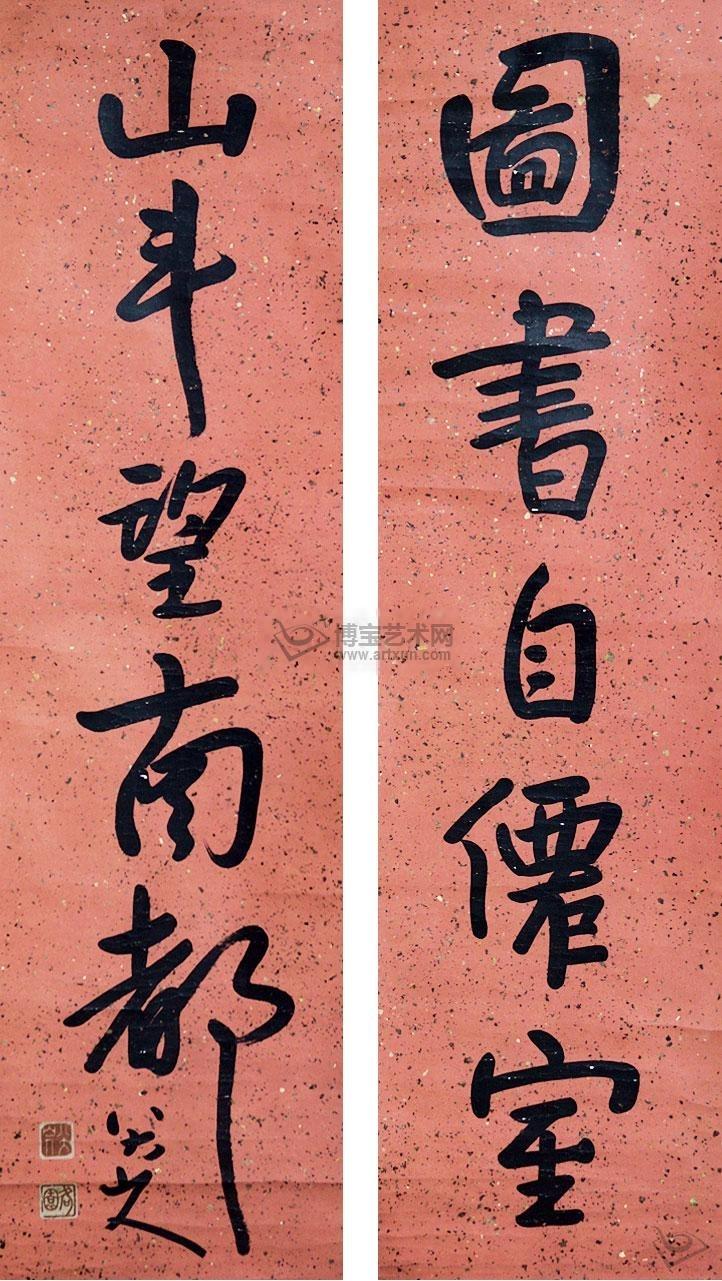 圖書自僊室
山斗望南都
八大山人
博宝艺术网
www.artxun.com